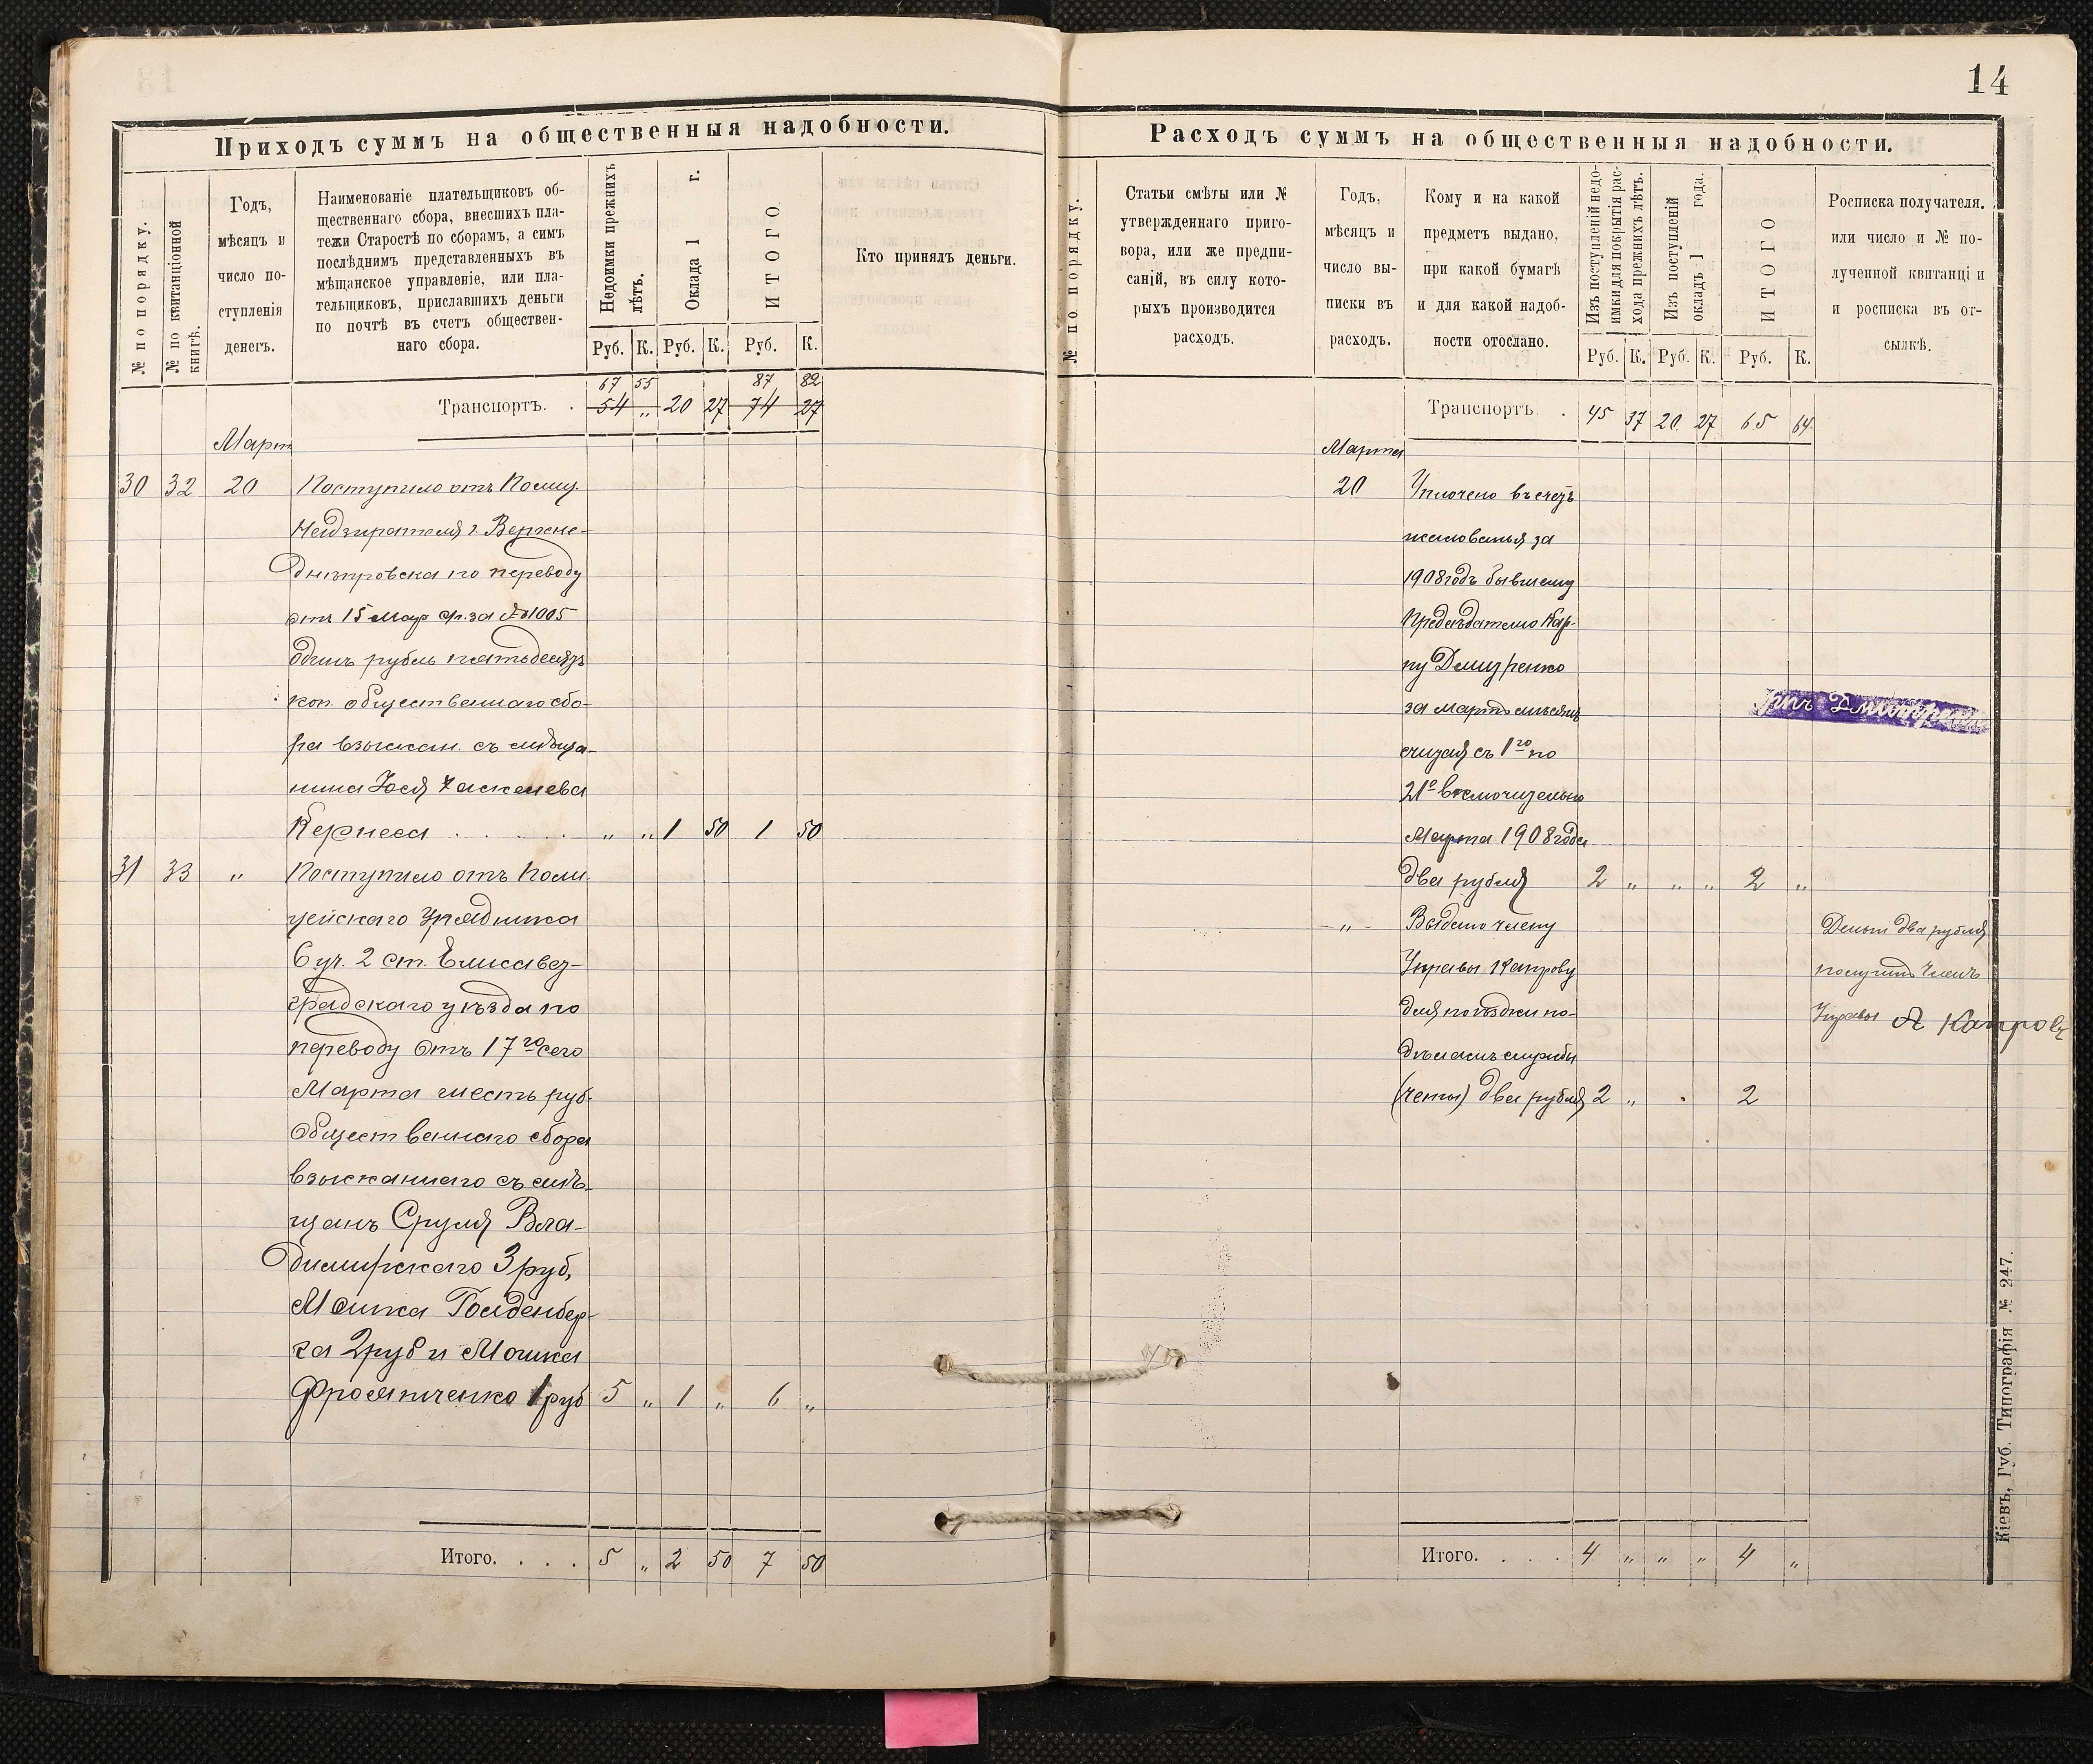 14
Приходъ суммъ на общественныя надобности.
№ по порядку.
№ по квитанціонной
книгѣ.
Годъ,
мѣсяцъ и
число по-
ступленія
денегъ.
Наименованіе плательщиковъ об-
щественнаго сбора, внесшихъ пла-
тежи Старостѣ по сборамъ, а симъ
послѣднимъ представленныхъ въ
мѣщанское управленіе, или пла-
тельщиковъ, приславшихъ деньги
по почтѣ въ счетъ обществен-
наго сбора.
Недоимки прежнихъ
лѣтъ.
Оклада 1 г.
ИТОГО.
Кто принялъ деньги.
Руб. К. Руб. К. Руб. К.
67 55 87 82
Транспортъ. . 54 „ 20 27 74 27
Март
30 32 20 Поступило отъ Полиц.
Надзирателя г. Верхне-
днѣпровска по переводу
отъ 15 Мар за № 1005
одинъ рубль пятьдесятъ
коп. общественнаго сбо-
ра взыскан. съ мѣща-
нина Хаскелева
Кернеса . . . . . „ „ 1 50 1 50
31 33 „ Поступило отъ Поли
цейскаго Урядника
6 уч. 2 ст. Елисавет-
градскаго уѣзда по
переводу отъ 17го сего
Марта шесть руб.
общественнаго сбора
взысканнаго съ мѣ-
щанъ Сруля Вла-
димирскаго 3 руб,
Мошка Голденбер-
га 2 руб и Мошка
1 руб 5 „ 1 „ 6 „
Итого. . . . 5 „ 2 50 7 50
Расходъ суммъ на общественныя надобности.
№ по порядку.
Статьи смѣты или №
утвержденнаго приго-
вора, или же предпи-
саній, въ силу кото-
рыхъ производится
расходъ.
Годъ,
мѣсяцъ и
число вы-
писки въ
расходъ.
Кому и на какой
предметъ выдано,
при какой бумагѣ
и для какой надоб-
ности отослано.
Изъ поступленій недо-
имки для покрытія рас-
хода прежнихъ лѣтъ.
Изъ поступленій
окладъ 1 года.
ИТОГО
Росписка получателя.
или число и № по-
лученной квитанціи
и росписка въ от-
сылкѣ.
Руб. К. Руб. К. Руб. К.
Транспортъ. . 45 37 20 27 65 64
Марта
20 Уплочено въ счетъ
жалованья за
1908 годъ бывшему
Предсѣдателю Кар-
пу Дмитренко
за Мартъ мѣсяцъ
считая съ 1го по
21е включительно
Марта 1908 года
два рубля 2 „ „ „ 2 „
„ Выдано члену
Управы Капрову
для поѣздки по
дѣламъ службы
два рубля 2 „ . 2
Дмитренко
Деньги два рубля
получилъ Членъ
Управы А Капровъ
Итого. . . . 4 „ „ „ 4 „
Кіевъ, Губ. Типографія № 247.